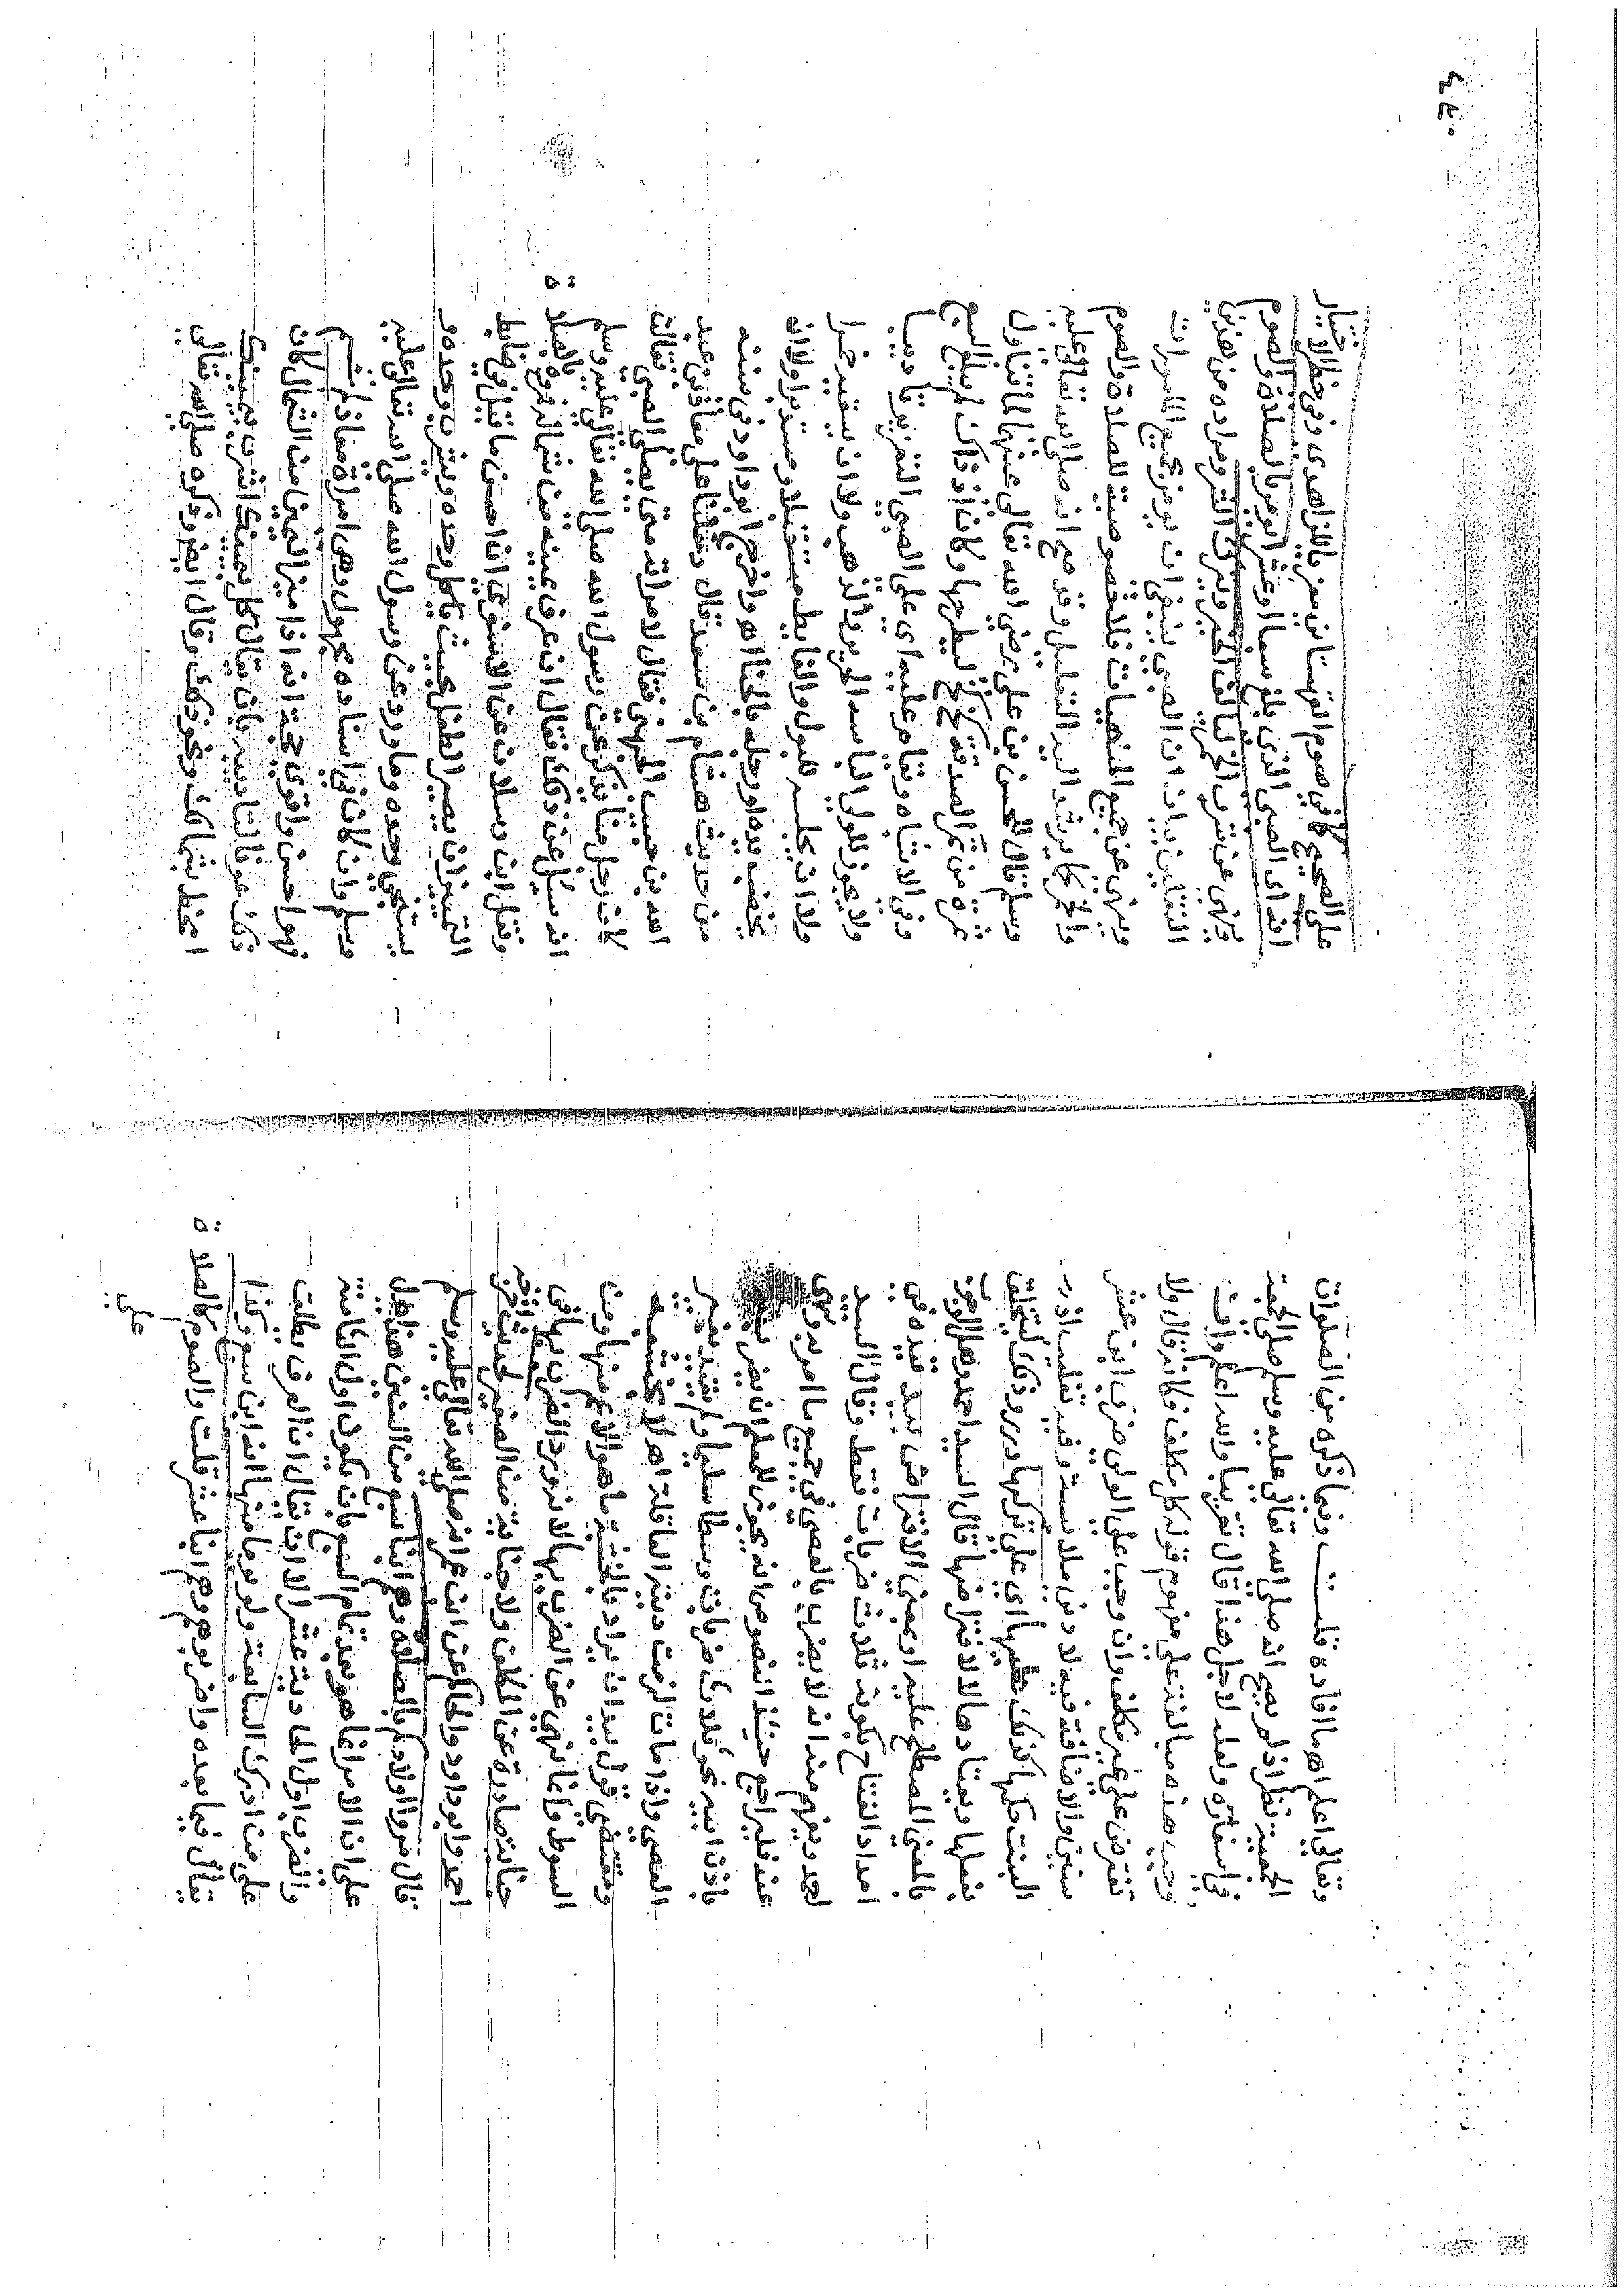 وتعالى اعلم اه ما افاده قلت وفيما ذكره من الصلوات
نظر اذ لم يصح انه صلى الله تعالى عليه وسلم صلى الجمعة
في اسفاره ولعله لاجل هذا قال تقريبا والله اعلم
هذه مبالغة على مفهوم قوله كل مكلف فكانه قال ولا
تفترض على غير مكلف وان وجب على الولي ضرب ابن عشر
سنين والاضافة فيه لادنى ملابسة وفيه تغليب اذ
البنت حكمها كذلك عليها اي على تركها وذلك
بفعلها ويعتادها لا لافتراضها قال السيد احمد وهل الوجوب
بالمعنى المصطلح عليه او بمعنى الافتراض بيد قيده في
امداد الفتاح بكونه ثلاث ضربات فقط وقال السيد
احمد ويفهم منه انه لا يضرب بالعصى في جميع ما امر به ونهى
عنه فليراجع حينئذ انه يجوز للمعلم ان يضربه
باذن ابيه نحو ثلاث ضربات وسطا سليما ولم يقيده بغير
العصى واذا مات لزمت دية العاقلة اه لا بخشبة
ومقتضى قول بيد ان يراد بالخشبة ما هو الاعم منها ومن
السوط وانما نهى عن الضرب بها لانه ورد الضرب بها في
جناية صادرة عن المكلف ولا جناية من الصغير لحديث
احمد وابو داود والحاكم عن ابن عمر انه صلى الله تعالى عليه وسلم
قال مروا اولادكم بالصلاة وهم ابناء سبع من السنين هذا
على ان الامر انما هو بعد تمام السبع بان يكون اول الثامنة
والضرب اول الحادية عشر الا ان يقال ان العرف يطلق
على من ادرك السابعة ولو انه ابن سبع وكذا
يقال فيما بعده واضربوهم ابناء عشر قلت والصوم كالصلاة
على
على الصحيح كما في صوم القهستاني معزيا للزاهدي وفي حظر الاختيار
انه اي الصبي الذي بلغ سبعا او عشرا يؤمر بالصلاة والصوم
وينهى عن شرب الخمر ليالف الخير ويترك الشر ومراده من هذين
النقلين بيان ان الصبي ينبغي ان يؤمر بجميع المامورات
وينهى عن جميع المنهيات فلا خصوصية للصلاة والصوم
والخمر كما يرشد اليه التعليل وقد صح انه صلى الله تعالى عليه
وسلم قال للحسن بن علي رضي الله تعالى عنهما لما تناول
تمرة من تمر الصدقة كخ كخ ليطرحها وكان اذ ذاك لم يبلغ السبع
وفي الاشباه وتقام عليه اي على الصبي التعزير تاديبا
ولا يجوز للولي الباسه الحرير والذهب ولا ان يسقيه خمرا
ولا ان يجلسه للبول والغايط مستقبلا ومستدبرا ولا ان
يخضب يده او رجله بالحناء اه واخرج ابو داود في سننه
من حديث هشام بن سعد قال دخلنا على معاذ بن عبد
الله بن خبيب الجهني فقال لامراته متى يصلي الصبي فقالت
كان رجل منا يذكر عن رسول الله صلى الله تعالى عليه وسلم
انه سئل عن ذلك فقال ان عرف يمينه من شماله فمروه بالصلاة
ونقل ابن رسلان عن الاسنوي ان احسن ما قيل في ضابط
التمييز ان يصير الطفل بحيث ياكل وحده ويشرب وحده و
يستنجي وحده وما ورد عن رسول الله صلى الله تعالى عليه
وسلم وان كان في اسناده مجهول وهي امراة معاذ
فهو احسن واقوى حجة انه اذا ميز اليمين من الشمال كان
ذلك نحو التاديبه بان يقال كل بيمينك اشرب بيمينك
احفظ شمالك ونحو ذلك وقال ايضا وذكره صلى الله تعالى